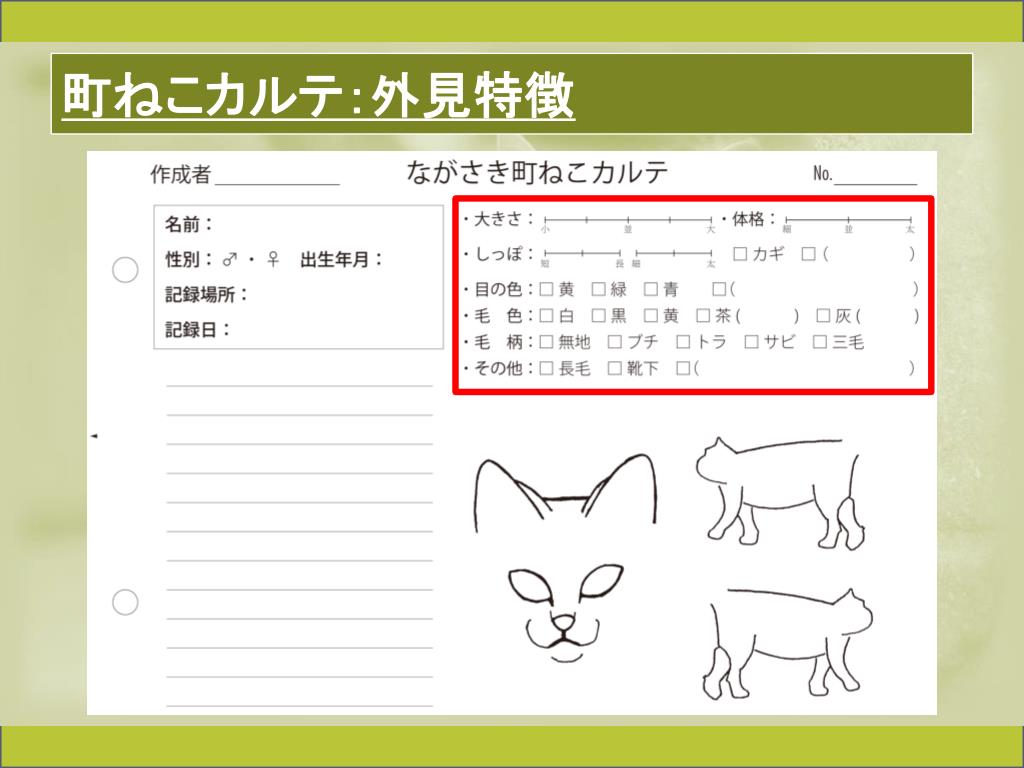 町ねこカルテ：外見特徴
作成者
ながさき町ねこカルテ
No.
名前：
性別：♂・♀　出生年月：
記録場所：
記録日：
・大きさ：　小　並　大　・体格：　細　並　太
・しっぽ：　短　長　細　太　□カギ　□（　　　）
・目の色：□黄　□緑　□青　□（　　　）
・毛　色：□白　□黒　□黄　□茶（　　　）　□灰（　　　）
・毛　柄：□無地　□ブチ　□トラ　□サビ　□三毛
・その他：□長毛　□靴下　□（　　　）